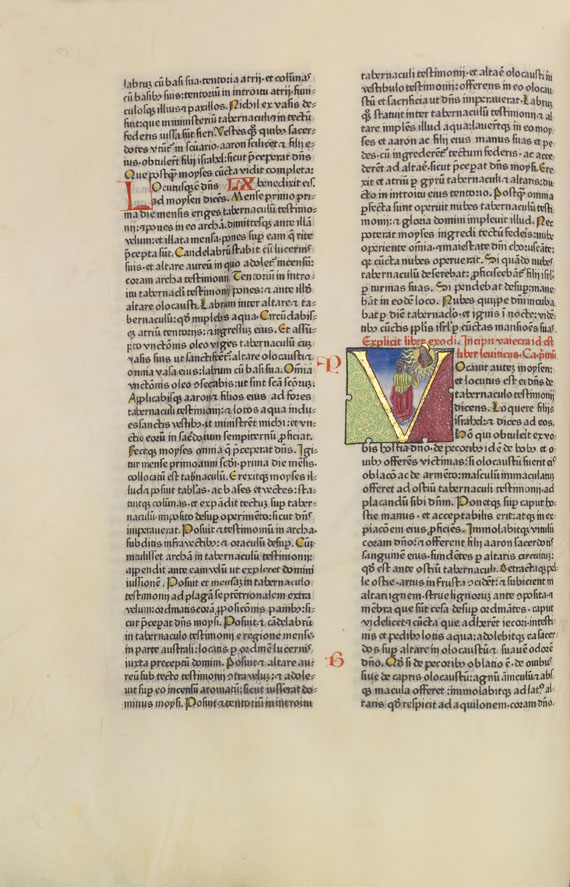 labrũ cũ basi sua·tentoria atrij·et colũnas
cũ basib⁹ suis:tentoriũ in introitu atrij·funi-
culosq̃ illius ⁊ paxillos. Nichil ex vasis de-
fuit:que ministeriũ tabernaculi·⁊ in tectũ
federis iussa sũt fieri. Vestes q̃ȝ quib⁹ sacer-
dotes vtũt᷑ in scũario·aaron scilicet ⁊ filij e-
ius·obtulerũt filij israhel:sicut p̃ceperat dñs
Que postq̃ moyses cũcta vidit completa:
Locutusq̃ᷤ dñs LX benedixit eis.
ad moysen dicẽs. Mense primo pri-
ma die mensis eriges tabernaculũ testimo-
nij:⁊ pones in eo archã·dimittesq̃ᷤ ante illã
velum:et illata mensa·pones sup eam q̃ rite
p̃cepta sũt. Candelabrũ stabit cũ lucernis
suis·et altare aureũ in quo adolet᷑ incensũ:
coram archa testimonij Tentoriũ in introi-
itu tabernacli testimonij pones:⁊ ante illd̃
altare olocausti. Labrum inter altare ⁊ ta-
bernaculũ:qd̃ implebis aqua. Circũdabis-
q̃ᷤ atriũ tentorijs:⁊ ingressus eius. Et assũ-
pto vnctõnis oleo vnges tabernaculũ cũ
vasis suis ut sanctificẽt᷑:altare olocausti ⁊
omnia vasa eius:labrum cũ basi sua. Omĩa
vnctõnis oleo ↄsecrabis:ut sint scã scõrũ:
Applicabisq̃ᷤ aaron ⁊ filios eius ad fores
tabernaculi testimonij:⁊ lotos aqua indu-
es sanctis vestib⁹:ut ministrẽt michi:et vn-
ctio eorũ in sacẽdotium sempiternũ p̃ficiat.
Fecitq̃ᷤ moyses omĩa q̃ p̃ceperat dñs. Igi-
tur mense primo anni scdĩ·prima die mẽsis·
collocatũ est tab̃naculũ. Erexitq̃ᷤ moyses il-
lud·⁊ posuit tablas·ac bases et vectes:sta-
tuitq̃ᷤ colũnas·et expãdit tectũ sup taber-
naculũ·imposito desup operimẽto:sicut dñs
imperauerat. Posuit ⁊ testimoniũ in archa·
subditis infra vectib⁹:⁊ oraculũ desup. Cũq̃ᷤ
intulisset archã in tabernaculũ testimonij:
appendit ante eam velũ ut expleret domini
iussionẽ. Posuit et mensaȝ in tabernaculo
testimonij ad plagã septẽtrionalem extra
velum:ordinatis corã p̃posicõnis panib⁹:si-
cut p̃cepat dñs moysi. Posuit ⁊ cãdelabrũ
in tabernaculo testimonij e regione mense·
in parte australi:locatis p ordinẽ lucernis
iuxta preceptũ domini. Posuit ⁊ altare au-
reũ sub tecto testimonij ↄtra velum:⁊ adole-
uit sup eo incensũ aromatũ:sicut iusserat do-
minus moysi. Posuit ⁊ tentoriũ in introitu
tabernaculi testimonij·et altar̃ olocausti in
vestibulo testimonij:offerens in eo olocau-
stũ et sacrificia ut dñs imperauerat. Labrum
q̃ȝ statuit inter tabernaculũ testimonij ⁊ al-
tare implẽs illud aqua:lauerũtq̃ᷤ in eo moy-
ses et aaron ac filij eius manus suas et pe-
des·cũ ingrederẽt᷑ tectum federis·ac acce-
derẽt ad altar̃·sicut p̃ceperat dñs moysi. Ere-
xit et atriũ p gyrũ tabernaculi ⁊ altaris:du-
cto in introitu eius tentorio. Postq̃ omĩa
p̃fecta sunt operuit nubes tabernaculũ testi-
monij:⁊ gloria domini impleuit illud. Nec
poterat moyses ingredi tectũ federis:nube
operiente omĩa·⁊ maiestate dñi choruscãte:
q̃ cũcta nubes operuerat. Si quãdo nubes
tabernaculũ deserebat:p̃ficiscebãt᷑ filij isrl̃
p turmas suas. Si pendebat desup:mane-
bãt in eodẽ loco. Nubes quippe dñi incuba-
bat p diẽ tab̃naclo·et ignis ĩ nocte:viden-
tib⁹ cũctis pplis isrl̃ p cũctas mansiões suas.
Explicit liber exodi. Incipit vaiecra id est
liber leuiticus. Ca·pmũ.
P
Vocauit autez moysen:
et locutus est ei dñs de
tabernaculo testimonij
dicens. Loquere filijs
israhel:⁊ dices ad eos.
Hõ qui obtulerit ex vo-
bis hostiã dño·de pecorib⁹ id ẽ de bob⁹ et o-
uib⁹ offerẽs victimas:si olocaustũ fuerit eius
oblacõ ac de armẽto:masculũ immaculatũ
offeret ad ostiũ tabernaculi testimonij·ad
placandũ sibi dñm. Ponetq̃ᷤ sup caput ho-
stie manus·et acceptabilis erit:atq̃ᷤ in ex-
piacõem eius p̃ficiẽs. Immolabitq̃ᷤ vitulũ
coram dño:⁊ offerent filij aaron sacerdotes
sanguinẽ eius·fundẽtes p altaris circuitũ:
qd̃ est ante ostiũ tabernaculi. Detractaq̃ᷤ pel-
le hostie·artus in frusta ↄcidẽt:⁊ subicient in
altari ignem·strue lignorũ ante ↄposita:⁊
mẽbra que sũt cesa desup ordinãtes·caput
videlicet ⁊ cũcta que adherẽt iecori·intesti-
nis et pedib⁹ lotis aqua:adolebitq̃ᷤ ea sacer-
dos sup altare in olocaustũ ⁊ suauẽ odorẽ
dño. B Qd̃ si de pecorib⁹ oblatio ẽ·de ouibus
siue de capris olocaustũ:agnũ ãniculũ ⁊ abs-
q̃ᷤ macula offeret:immolabitq̃ᷤ ad lat⁹ al-
taris qd̃ respicit ad aquilonem·coram dño.